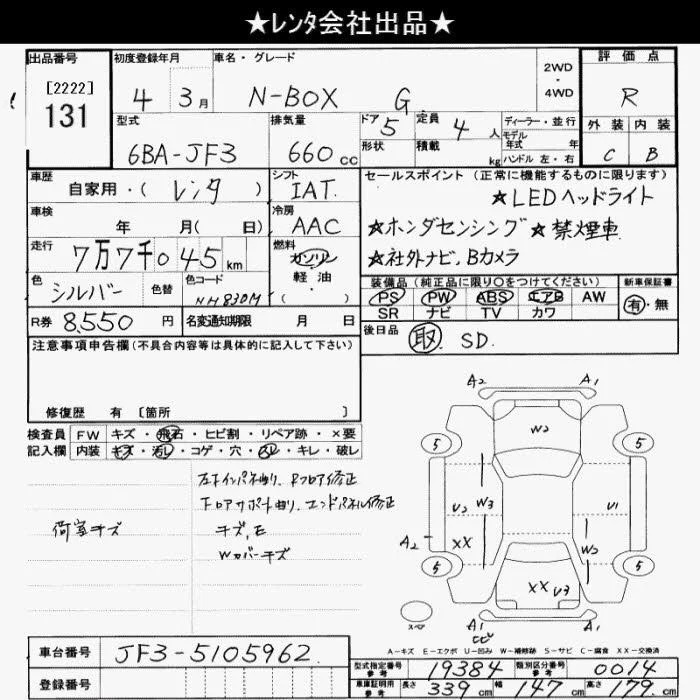 ★レンタ会社出品★
出品番号 初度登録年月 車名・グレード 2WD・4WD 評価点
[2222]
131
4年 3月 N-BOX G R
型式 排気量 ドア 5 定員 4人 ディーラー・並行 外装 内装
6BA-JF3 660cc 形状 積載 kg モデル年式 年 C B
ハンドル 左・右
車歴 自家用・(レンタ) シフト IAT セールスポイント (正常に機能するものに限ります)
★LEDヘッドライト
車検 年 月(日) 冷房 AAC ★ホンダセンシング★禁煙車
走行 7万7千045km 燃料 ガソリン・軽・油・( ) ★社外ナビ.Bカメラ
色 シルバー 色替 色コード NH830M 装備品 (純正品に限り○をつけてください) 新車保証書
PS PW ABS エアB AW 有・無
SR ナビ TV カワ
R券 8,550円 名変通知期限 月 日 後日品 取 SD.
注意事項申告欄 (不具合内容等は具体的に記入して下さい)
修復歴 有 [箇所 ]
検査員 FW キズ・飛石・ヒビ割・リペア跡・×要
記入欄 内装 キズ・汚レ・コゲ・穴・スレ・キレ・破レ
左インパネ曲り、Rフロア修正
Fロアサポート曲り、エンドパネル修正
荷室キズ キズ、E
Wカバーキズ
A2 A1
W2
5 5
U2 W3 U1
A2 XX W2
5 5
XX U3
スペア A1 A1
ヒビ
A-キズ E-エクボ U-凹み W-補修跡 S-サビ C-腐食 XX-交換済
車台番号 JF3-5105962
登録番号
型式指定番号 参考 19384 類別区分番号 参考 0014
車庫証明用 参考 長さ 339cm 幅 147cm 高さ 179cm